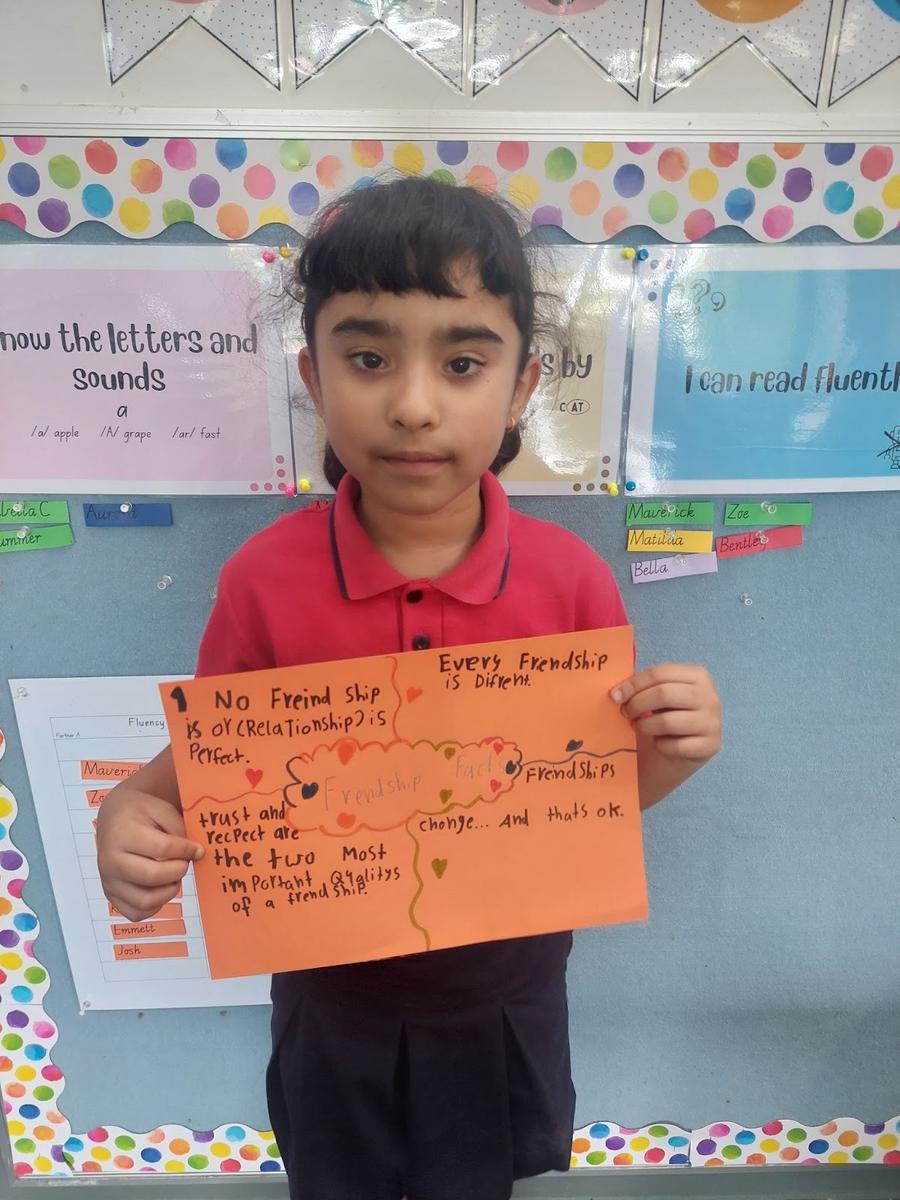 now the letters and
sounds
a
/a/ apple /A/ grape /ar/ fast
s by
C AT
I can read fluentl
ella C
Au
ummer
Maverick
Zoe
Matilda
Bentley
Bella
Fluency
Partner A
Maveric
Zo
Emmett
Josh
1 No Freind ship
is or (RelaTionship) is
Perfect.
Every Frendship
is Difrent.
Frendship Facts
trust and
recpect are
the two Most
important Qualitys
of a frendship.
Freindships
change... And thats ok.